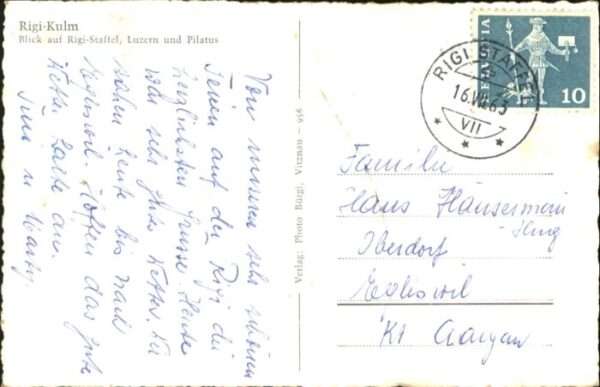 Rigi-Kulm
Blick auf Rigi-Staffel, Luzern und Pilatus
Von unseren sehr schönen
Ferien auf der Rigi die
herzlichsten Grüsse. Heute
sehr gutes Wetter. Wir
sahen heute bis nach
Hoffen das gute
Wetter halte an.
u. Marty
Verlag: Photo Bürgi, Vitznau – 956
HELVETIA
10
RIGI STAFFEL
16.VII.63
VII
Familie
Hans Häusermann
Oberdorf
Egliswil
Kt Aargau